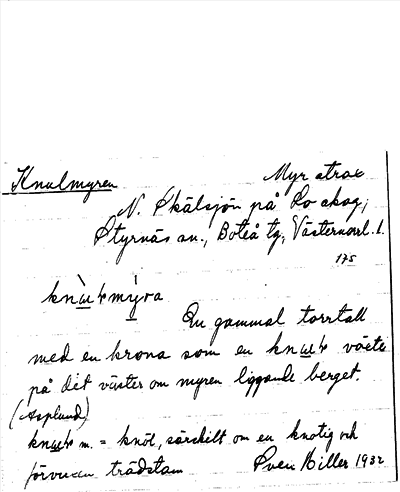 Knulmyren
Myr strax
N. Skälsjön på Lo skog,
Styrnäs sn., Boteå tg, Västernorrl. l.
175
med en krona som en växte
En gammal torrtall
på det väster om myren liggande berget.
(Asplund)
m. = knöl, särskilt om en knotig och
förvuxen trädstam Sven Hiller 1932